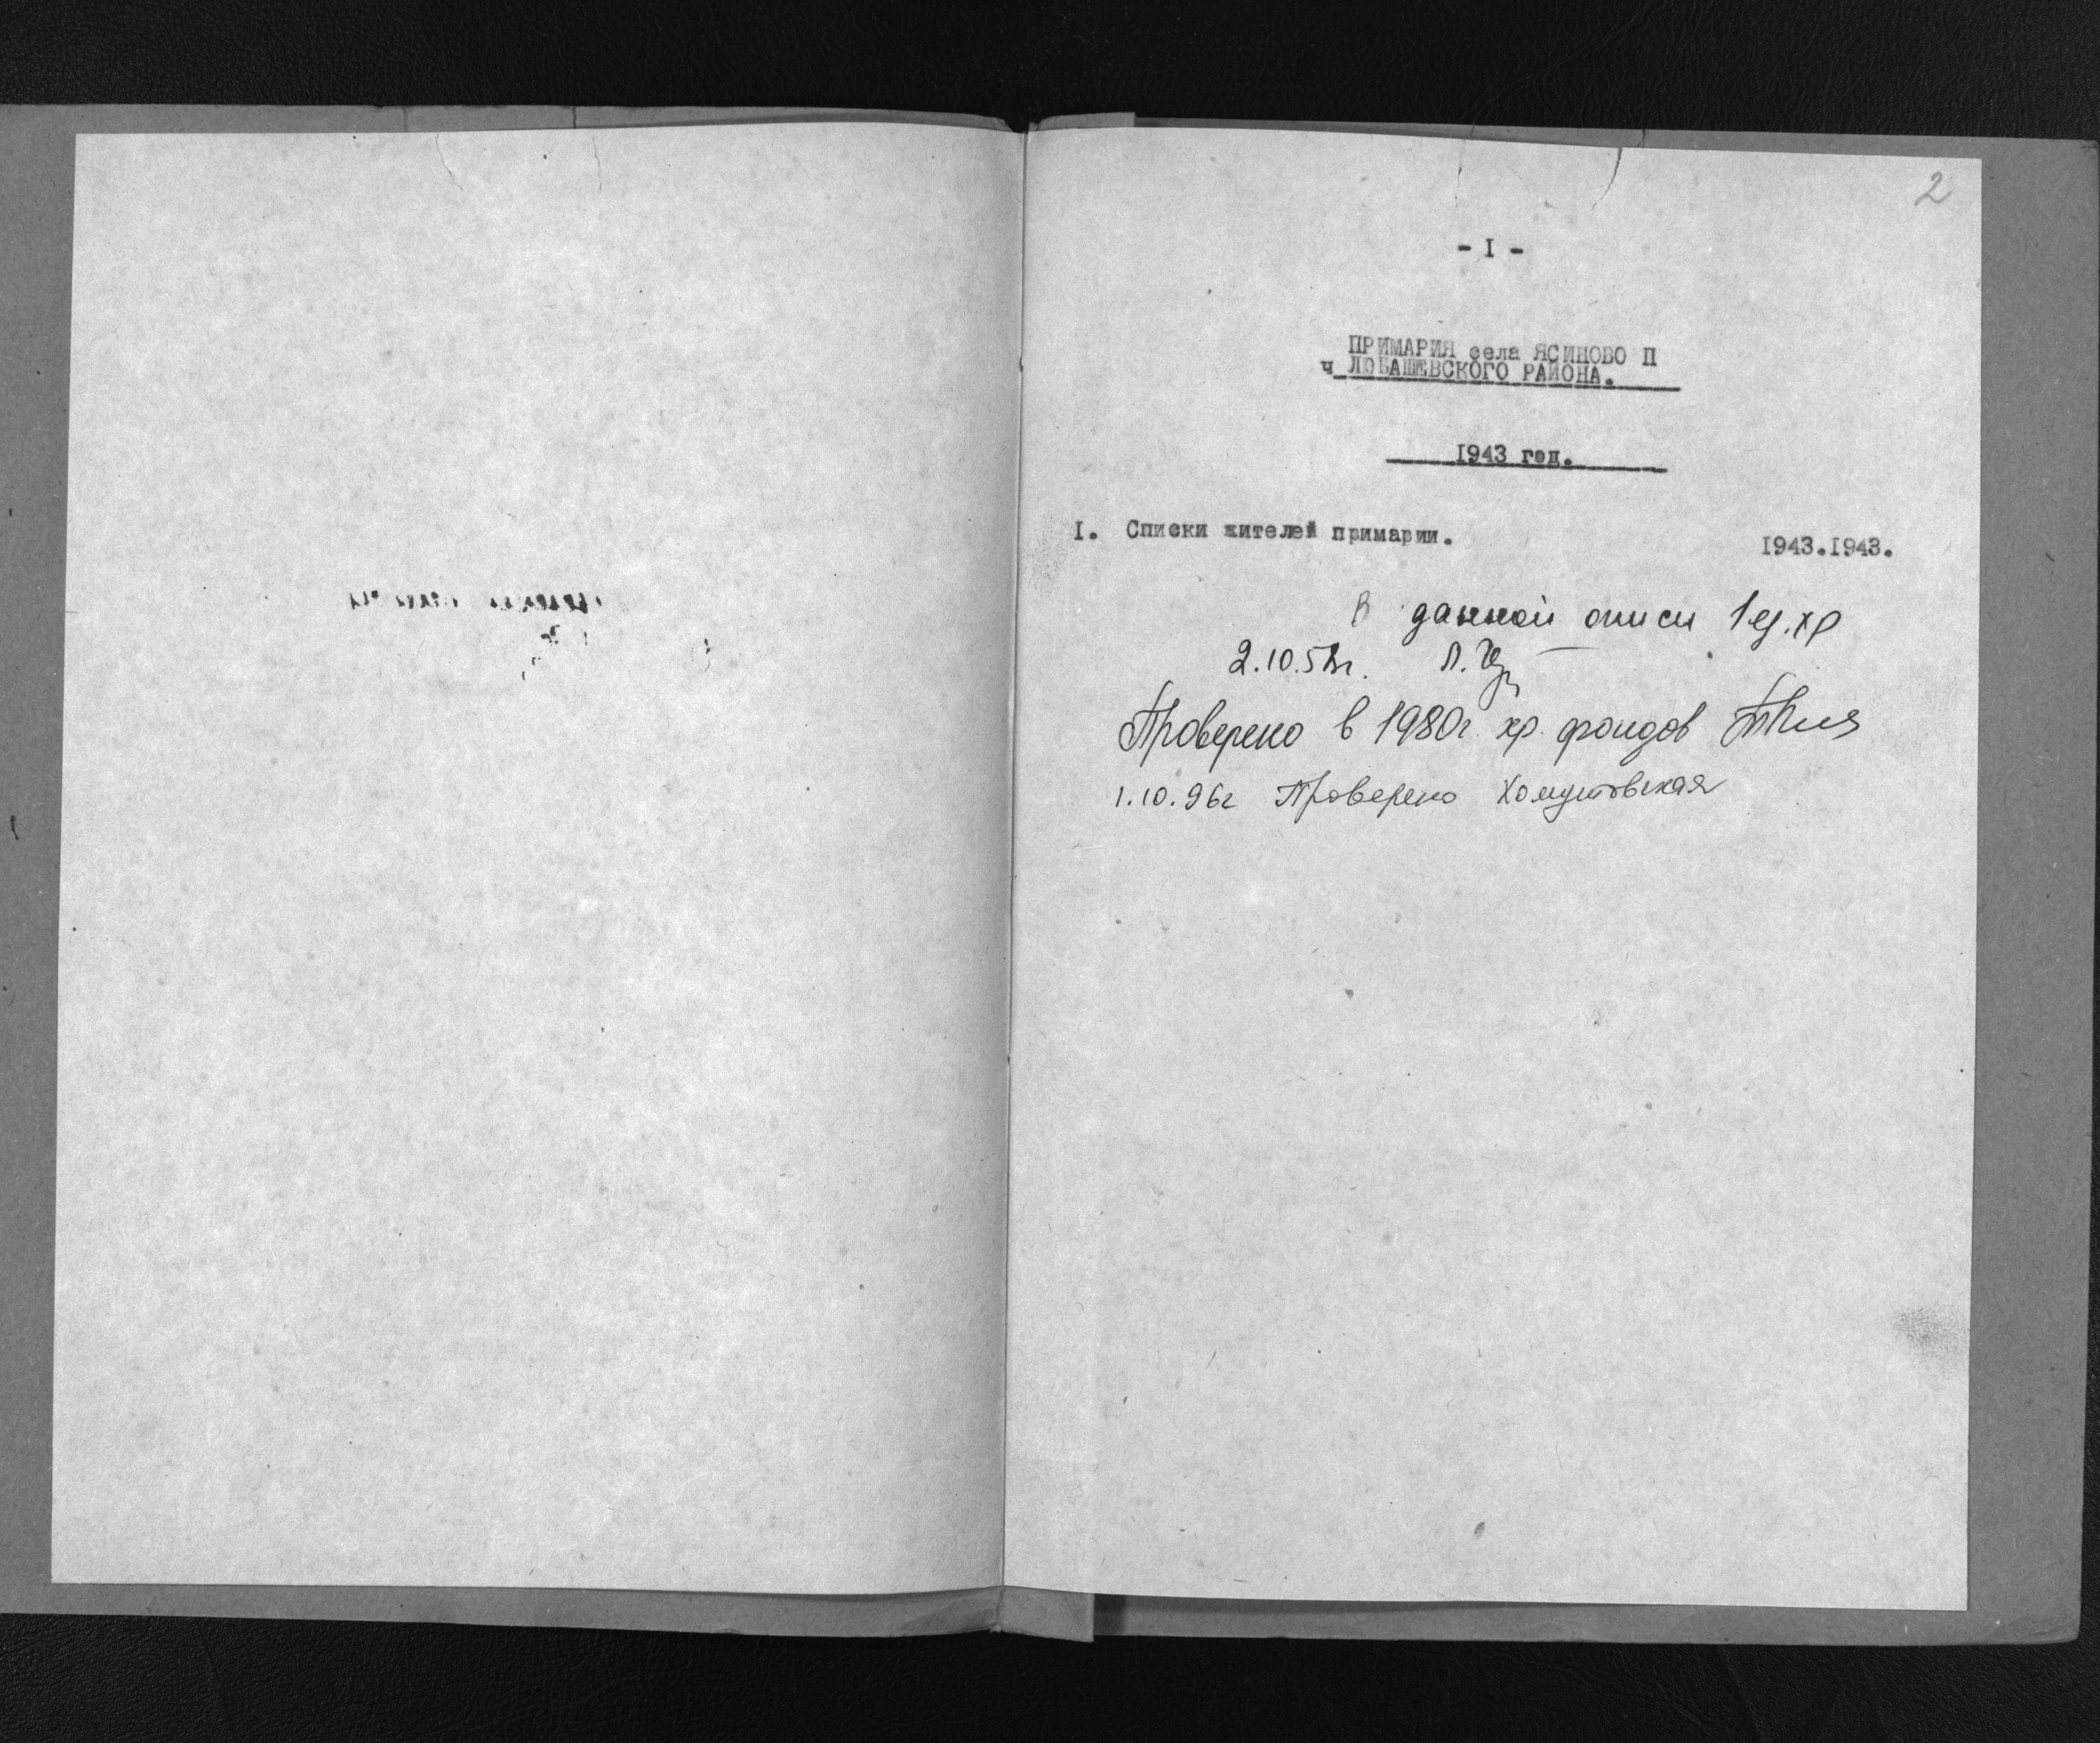 2
- I -
ПРИМАРИЯ села ЯСИНОВО П
ч ЛЮБАШЕВСКОГО РАЙОНА.
1943 год.
I. Списки жителей примарии. 1943.1943.
В данной описи 1 ед. хр
2.10.5 г. Л.
Проверено в 1980г. хр. фондов
1.10.96г Проверено Хомутовская